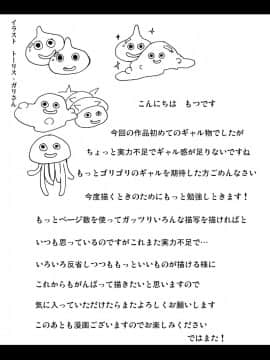 イラスト　トーリス・ガリさん
こんにちは　もつです
今回の作品初めてのギャル物でしたが
ちょっと実力不足でギャル感が足りないですね
もっとゴリゴリのギャルを期待した方ごめんなさい
今度描くときのためにもっと勉強しときます！
もっとページ数を使ってガッツリいろんな描写を描ければと
いつも思っているのですがこれまた実力不足で…
いろいろ反省しつつももっといいものが描ける様に
これからもがんばって描きたいと思いますので
気に入っていただけたらまたよろしくお願いします
このあとも漫画ございますのでお楽しみください
ではまた！